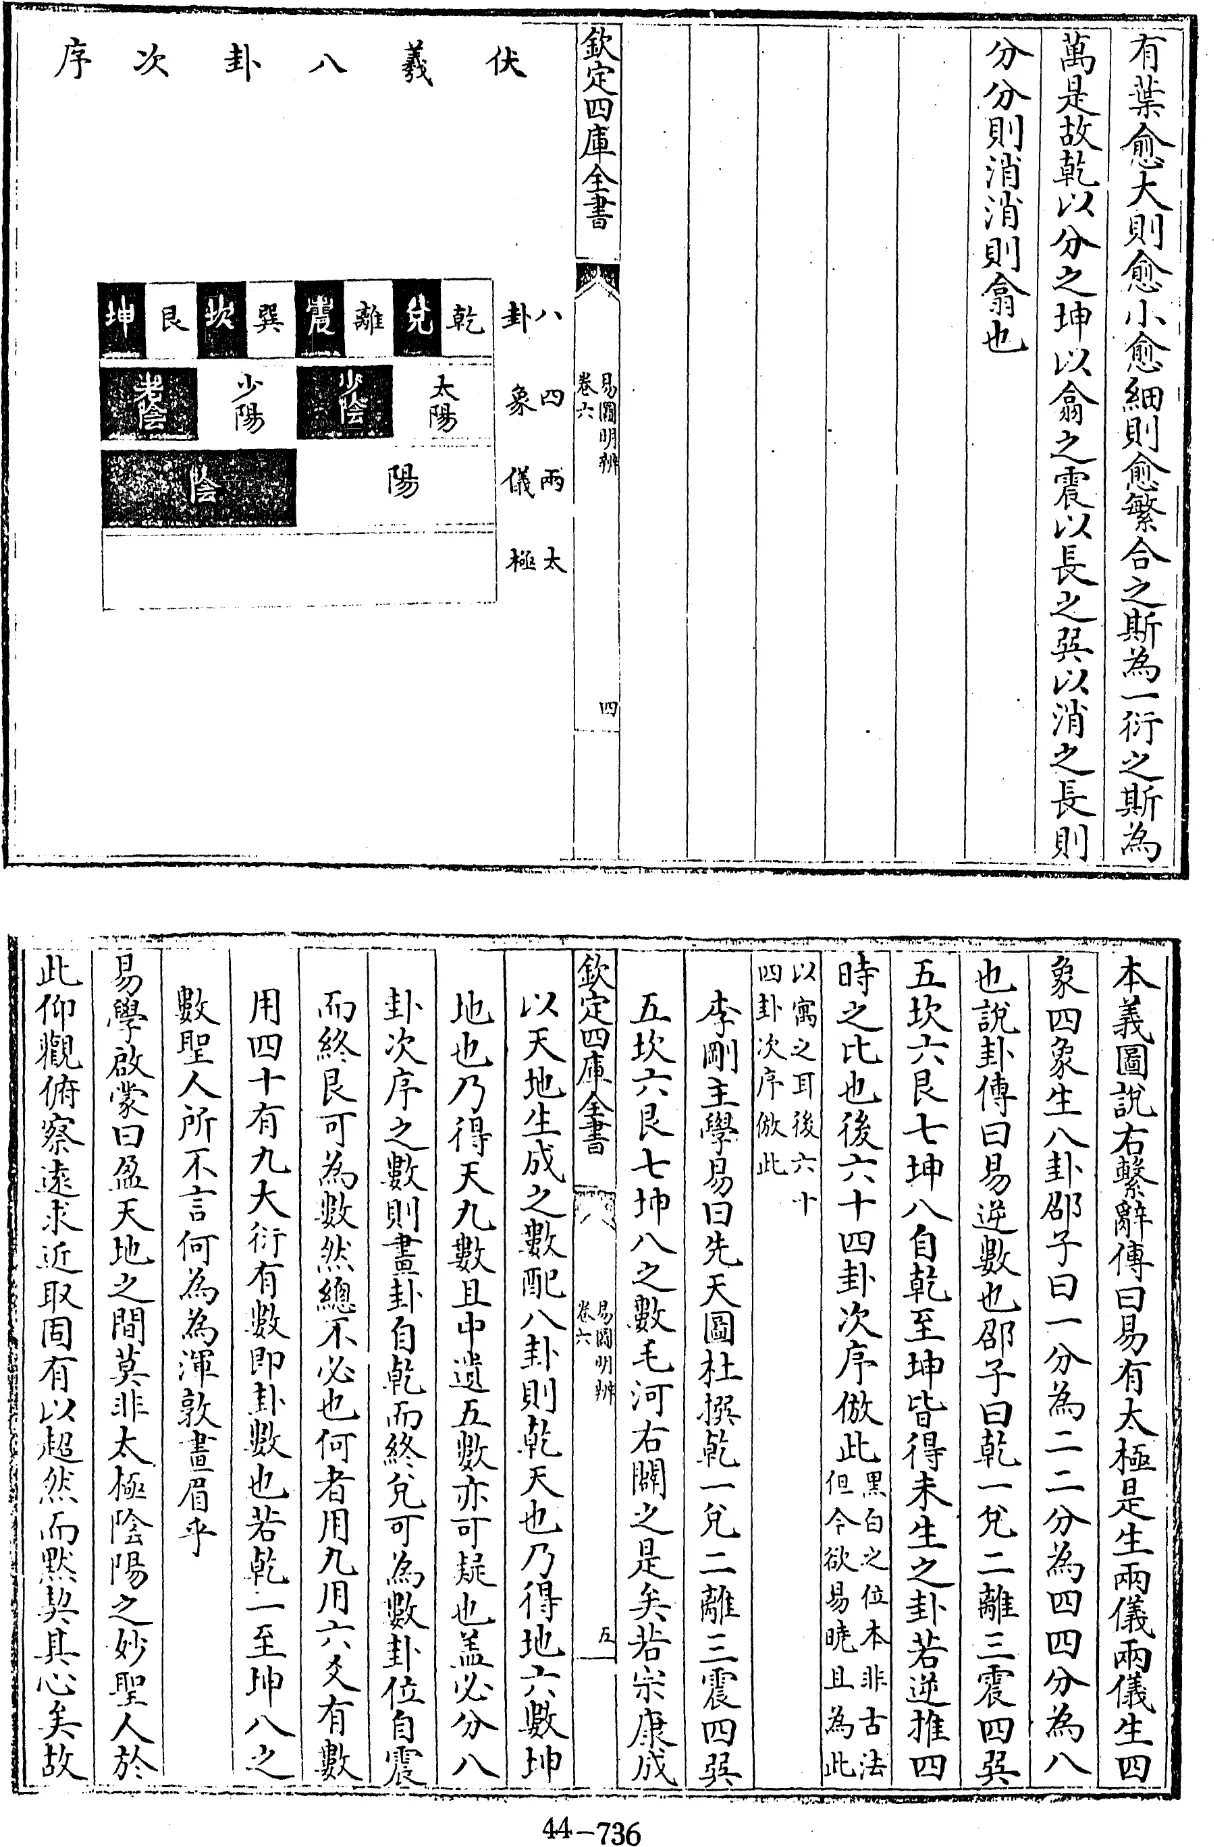 有葉愈大則愈小愈細則愈繁合之斯為一衍之斯為
萬是故乾以分之坤以翕之震以長之巽以消之長則
分分則消消則翕也
欽定四庫全書
易圖明辨
卷六
四
伏羲八卦次序
八卦
乾兌離震巽坎艮坤
四象
太陽少陰少陽老陰
兩儀
陽陰
太極
本義圖說右繫辭傳曰易有太極是生兩儀兩儀生四
象四象生八卦邵子曰一分為二二分為四四分為八
也說卦傳曰易逆數也邵子曰乾一兌二離三震四巽
五坎六艮七坤八自乾至坤皆得未生之卦若逆推四
時之比也後六十四卦次序倣此
黑白之位本非古法
但今欲易曉且為此
以寓之耳後六十
四卦次序倣此
李剛主學易曰先天圖杜撰乾一兌二離三震四巽
五坎六艮七坤八之數毛河右闢之是矣若宋康成
欽定四庫全書
易圖明辨
卷六
五
以天地生成之數配八卦則乾天也乃得地六數坤
地也乃得天九數且中遺五數亦可疑也蓋必分八
卦次序之數則畫卦自乾而終兌可為數卦位自震
而終艮可為數然總不必也何者用九用六爻有數
用四十有九大衍有數即卦數也若乾一至坤八之
數聖人所不言何為為渾敦畫眉乎
易學啟蒙曰盈天地之間莫非太極陰陽之妙聖人於
此仰觀俯察遠求近取固有以超然而默契其心矣故
44-736